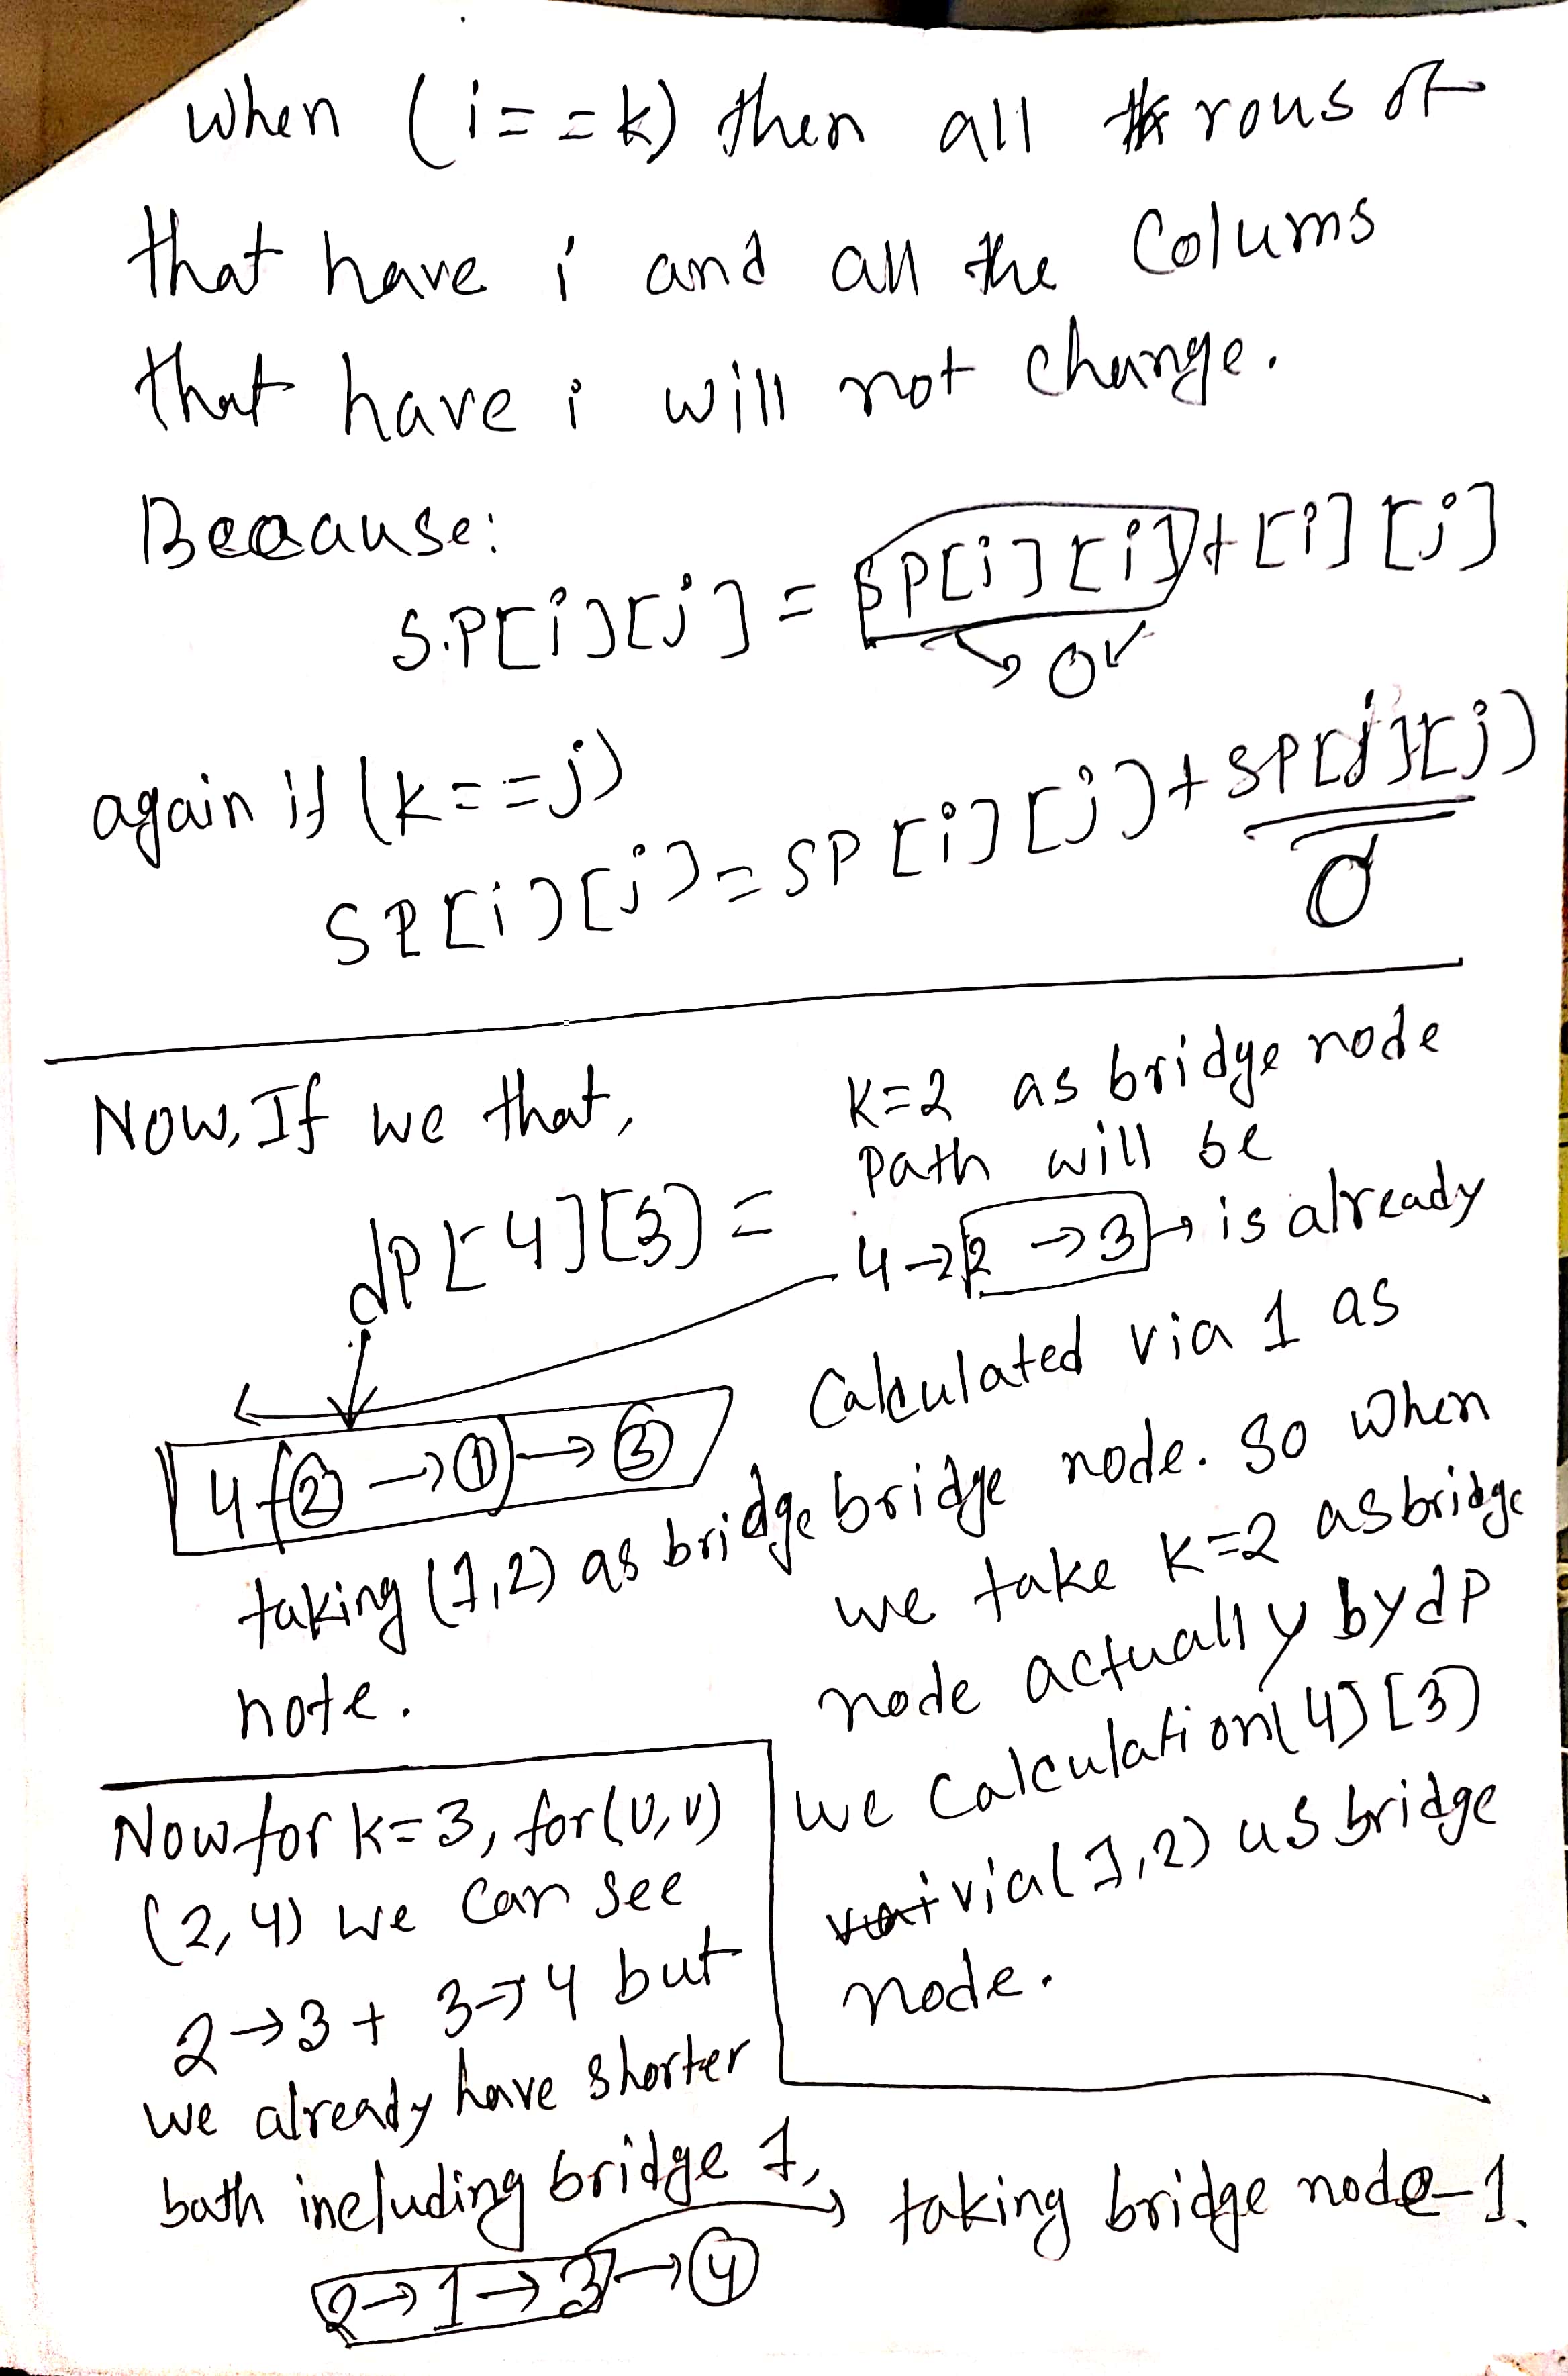 when (i==k) then all rous of
that have i and all the Colums
that have i will not change.
Beacause:
S.P[i][j] = SP[i][i]+[i][j]
0
again if (k==j)
SP[i][j]=SP[i][j]+SP[j][j]
0
Now, If we that,
dp[4][3] =
4 (2 → 1) → 3
taking (1,2) as bridge
note.
K=2 as bridge node
Path will be
4→2 →3 → is already
Calculated via 1 as
bridge node. So when
we take K=2 as bridge
node actually by dP
we Calculation[4][3]
via(1,2) as bridge
node.
Now for k=3, for(u,v)
(2,4) we can see
2→3 + 3→4 but
we already have shorter
bath including bridge 1,
2→1→3→4
taking bridge node-1.